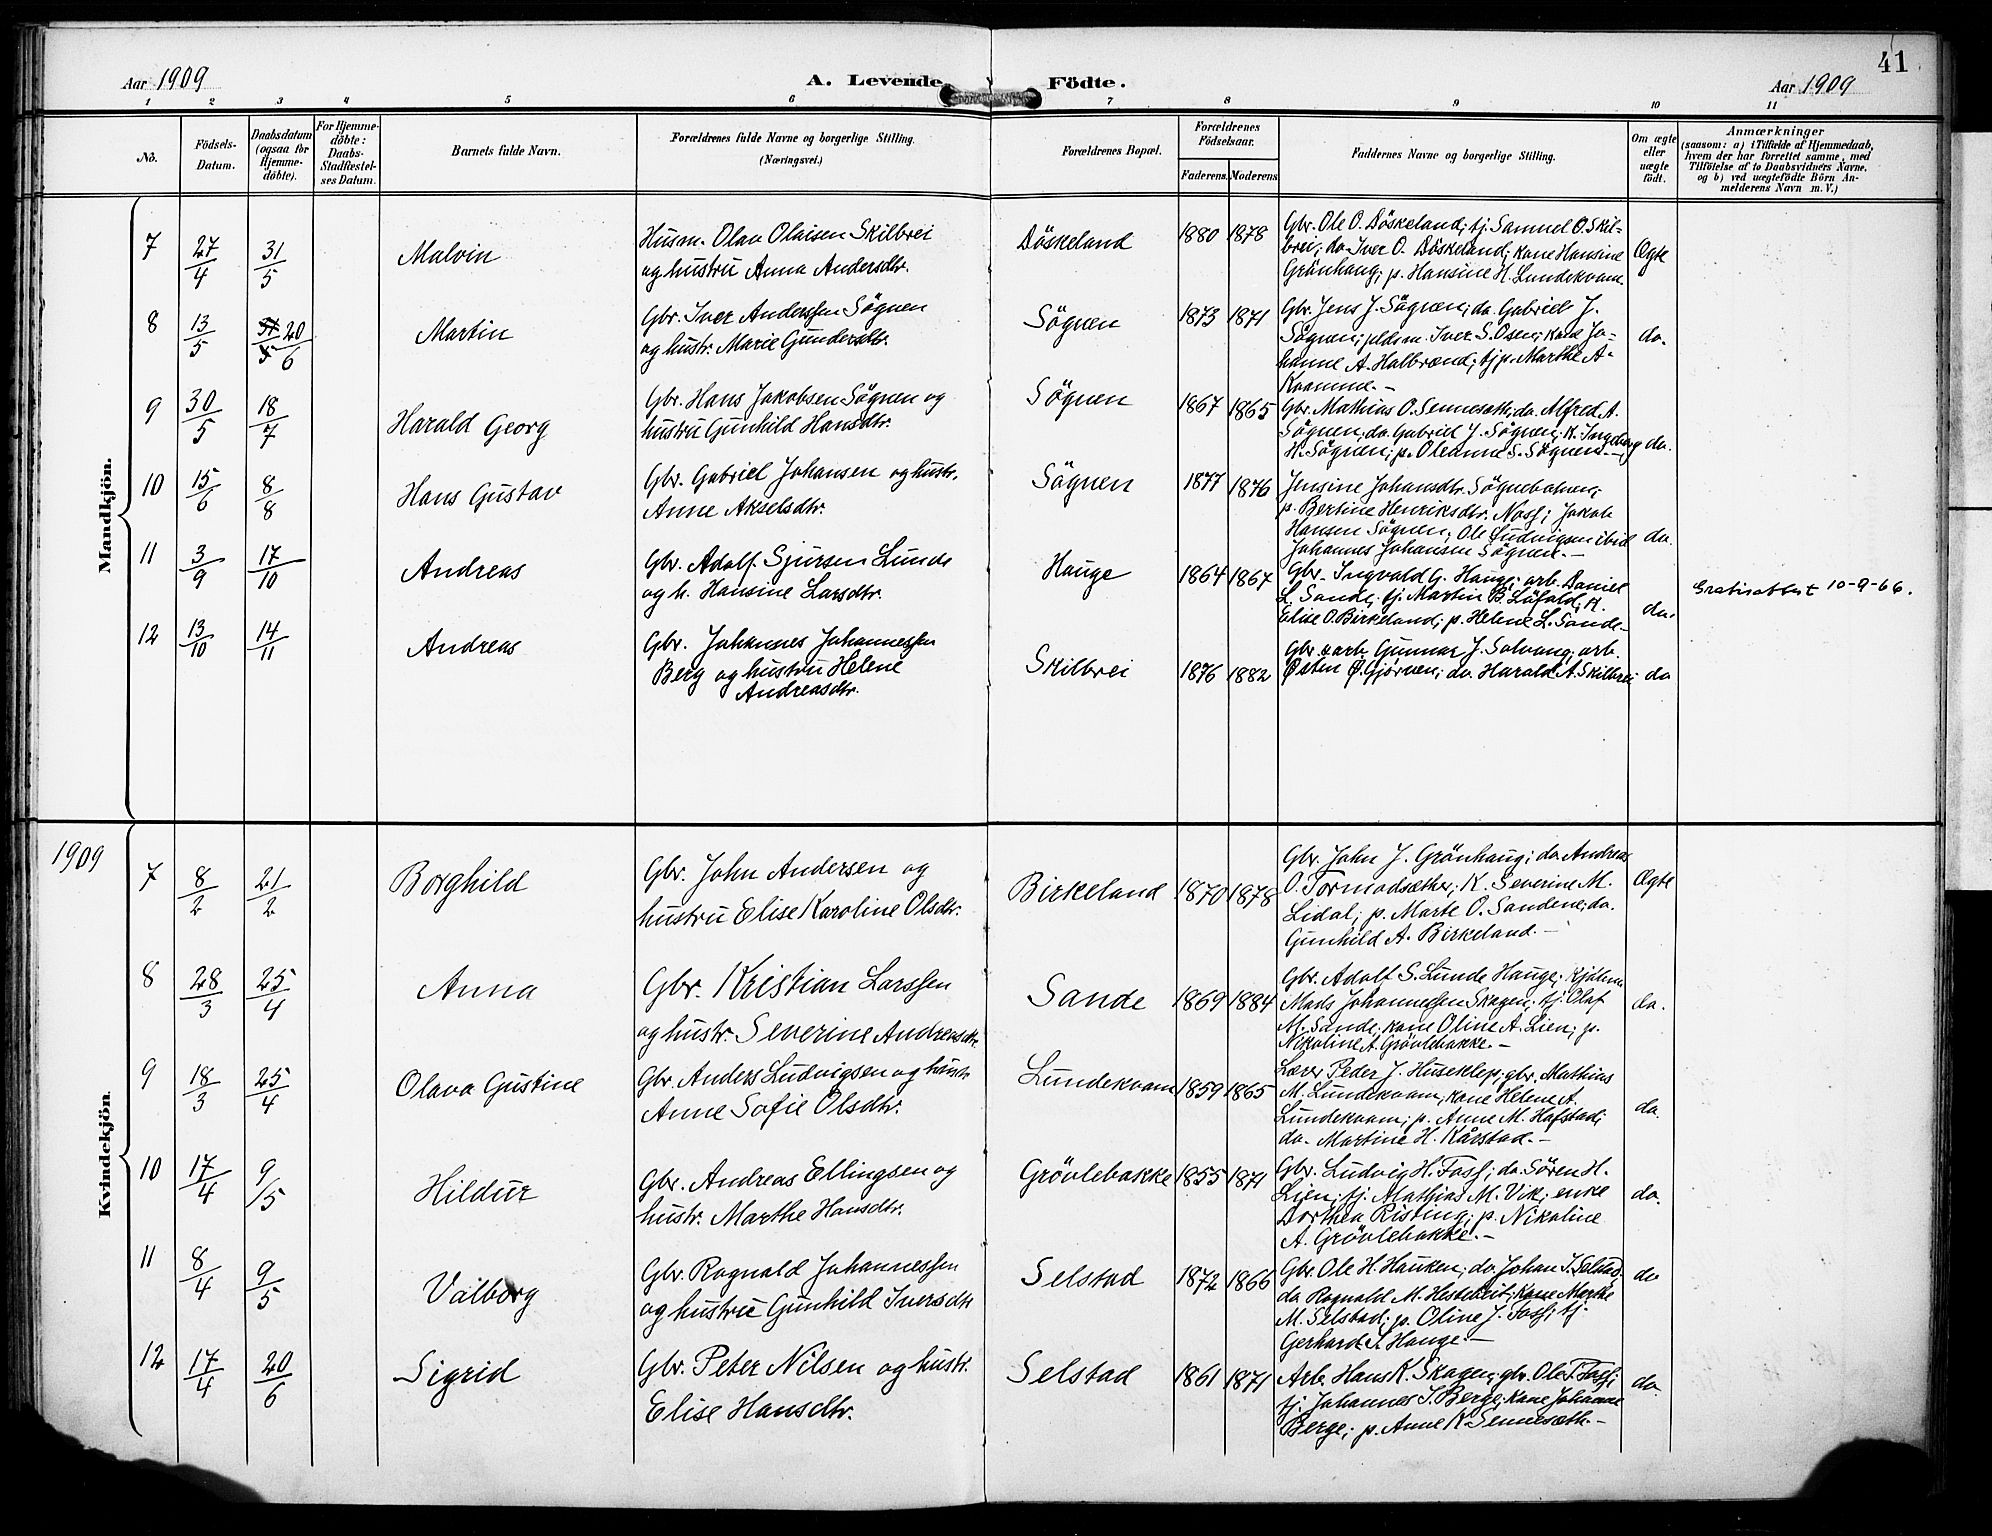 41
Aar 1909
A. Levende Födte.
Aar 1909
1 2 3 4 5 6 7 8 9 10 11
No.
Födsels-
Datum.
Daabsdatum
(ogsaa for
Hjemme-
döbte).
For Hjemme-
döbte:
Daabs-
Stadfæstel-
ses Datum.
Barnets fulde Navn.
Forældrenes fulde Navne og borgerlige Stilling.
(Næringsvei.)
Forældrenes Bopæl.
Forældrenes
Födselsaar.
Faderens. Moderens
Faddernes Navne og borgerlige Stilling.
Om ægte
eller
uægte
födt.
Anmærkninger
(saasom: a) i Tilfælde af Hjemmedaab,
hvem der har forrettet samme, med
Tilföielse af to Daabsvidners Navne,
og b) ved uægtefödte Börn An-
melderens Navn m. V.)
Mandkjön.
7 27/4 31/5 Malvin
Husm. Olav Olaisen Skilbrei
og hustru Anna Andersdtr.
Döskeland 1880 1878
Gbr. Ole O. Döskeland; tj. Samuel O. Skil-
brei; do. Iver O. Döskeland; kone Hansine
Grönhaug; p. Hansine H. Lundekvam
Ægte
8 13/5 31/5 20/6 Martin
Gbr. Iver Anderssen Sögnen
og hustr. Marie Gundersdtr.
Sögnen 1873 1871
Gbr. Jens J. Sögnen; do. Gabriel J.
Sögnen; pldsm. Iver S. Osen; kone Jo-
hanne A. Halbrend; tj. p. Marthe A.
Kvamme.-
do.
9 30/5 18/7 Harald Georg
Gbr. Hans Jakobsen Sögnen og
hustru Gunhild Hansdtr.
Sögnen 1867 1865
Gbr. Mathias O. Sennesæth; do. Alfred A.
Sögnen; do. Gabriel J. Sögnen; K. Ingeborg
H. Sögnen; p. Oledine S. Sögnen.-
do.
10 15/6 8/8 Hans Gustav
Gbr. Gabriel Johansen og hustr.
Anne Akselsdtr.
Sögnen 1877 1876
Jensine Johansdtr.
p. Bertine Henriksdtr. Noss; Jakob
Hansen Sögnen; Ole Ludvigsen ibid
Johannes Johansen Sögnen.-
do.
11 3/9 17/10 Andreas
Gbr. Adolf Sjursen Lunde
og h. Hansine Larsdtr.
Hauge 1864 1867
Gbr. Ingvald G. Hauge; arb. Daniel
L. Sande; tj. Martin B. K.
Elise O. Birkeland; p. Helene L. Sande-
do.
Gratisattest 10-9-66.
12 13/10 14/11 Andreas
Gbr. Johannes Johannessen
Berg og hustru Helene
Andreasdtr.
Skilbrei 1876 1882
Gbr. & arb. Gunnar J. Solvang; arb.
Østen Ø. Gjörven; do. Harald A. Skilbrei
do
1909
Kvindekjön.
7 8/2 21/2 Borghild
Gbr. John Andersen og
hustru Elise Karoline Olsdtr.
Birkeland 1870 1978
Gbr. John J. Grönhaug; do. Andreas
O. Tormodsæther; K. Severine M.
Lidal; p. Marte O. Sandene; do.
Gunhild A. Birkeland.-
Ægte
8 28/3 25/4 Anna
Gbr. Kristian Larssen
og hustr. Severine Andreasdtr.
Sande 1869 1884
Gbr. Adolf S. Lunde Hauge;
Mads Johannessen Skagen; tj. Olaf
M. Sande; kone Oline A. Lien; p.
Nikoline A. Grövlebakke.-
do.
9 18/3 25/4 Olava Gustine
Gbr. Anders Ludvigsen og hustr
Anne Sofie Olsdtr.
Lundekvam 1859 1865
Lærer Peder J. Huseklep; gbr. Mathias
M. Lundekvam; kone Helene A.
Lundekvam; p. Anne M. Hafstad;
do. Martine H. Kårstad.-
do.
10 17/4 9/5 Hildur
Gbr. Andreas Ellingsen og
hustr. Marthe Hansdtr.
Grövlebakke 1855 1871
Gbr. Ludvig H. Foss; do. Sören H.
Lien; tj. Mathias M. Vik; enke
Dorthea Risting; p. Nikoline
A. Grövlebakke.-
do.
11 8/4 9/5 Valborg
Gbr. Ragnald Johannessen
og hustru Gunhild Iversdtr
Selstad 1872 1866
Gbr. Ole H. Hauken; do. Johan I. Selstad
do Ragnald M. Hestebeit; kone Merthe
M. Selstad; p. Oline J. Foss; tj.
Gerhard S. Hauge.-
do
12 17/4 20/6 Sigrid
Gbr. Peter Nilsen og hustr.
Elise Hansdtr.
Selstad 1861 1871
Arb. Hans K. Skagen; gbr. Ole T. Foss;
tj. Johannes S. Berge; kone Johanne
Berge; p. Anne K. Sennesæth.-
do.